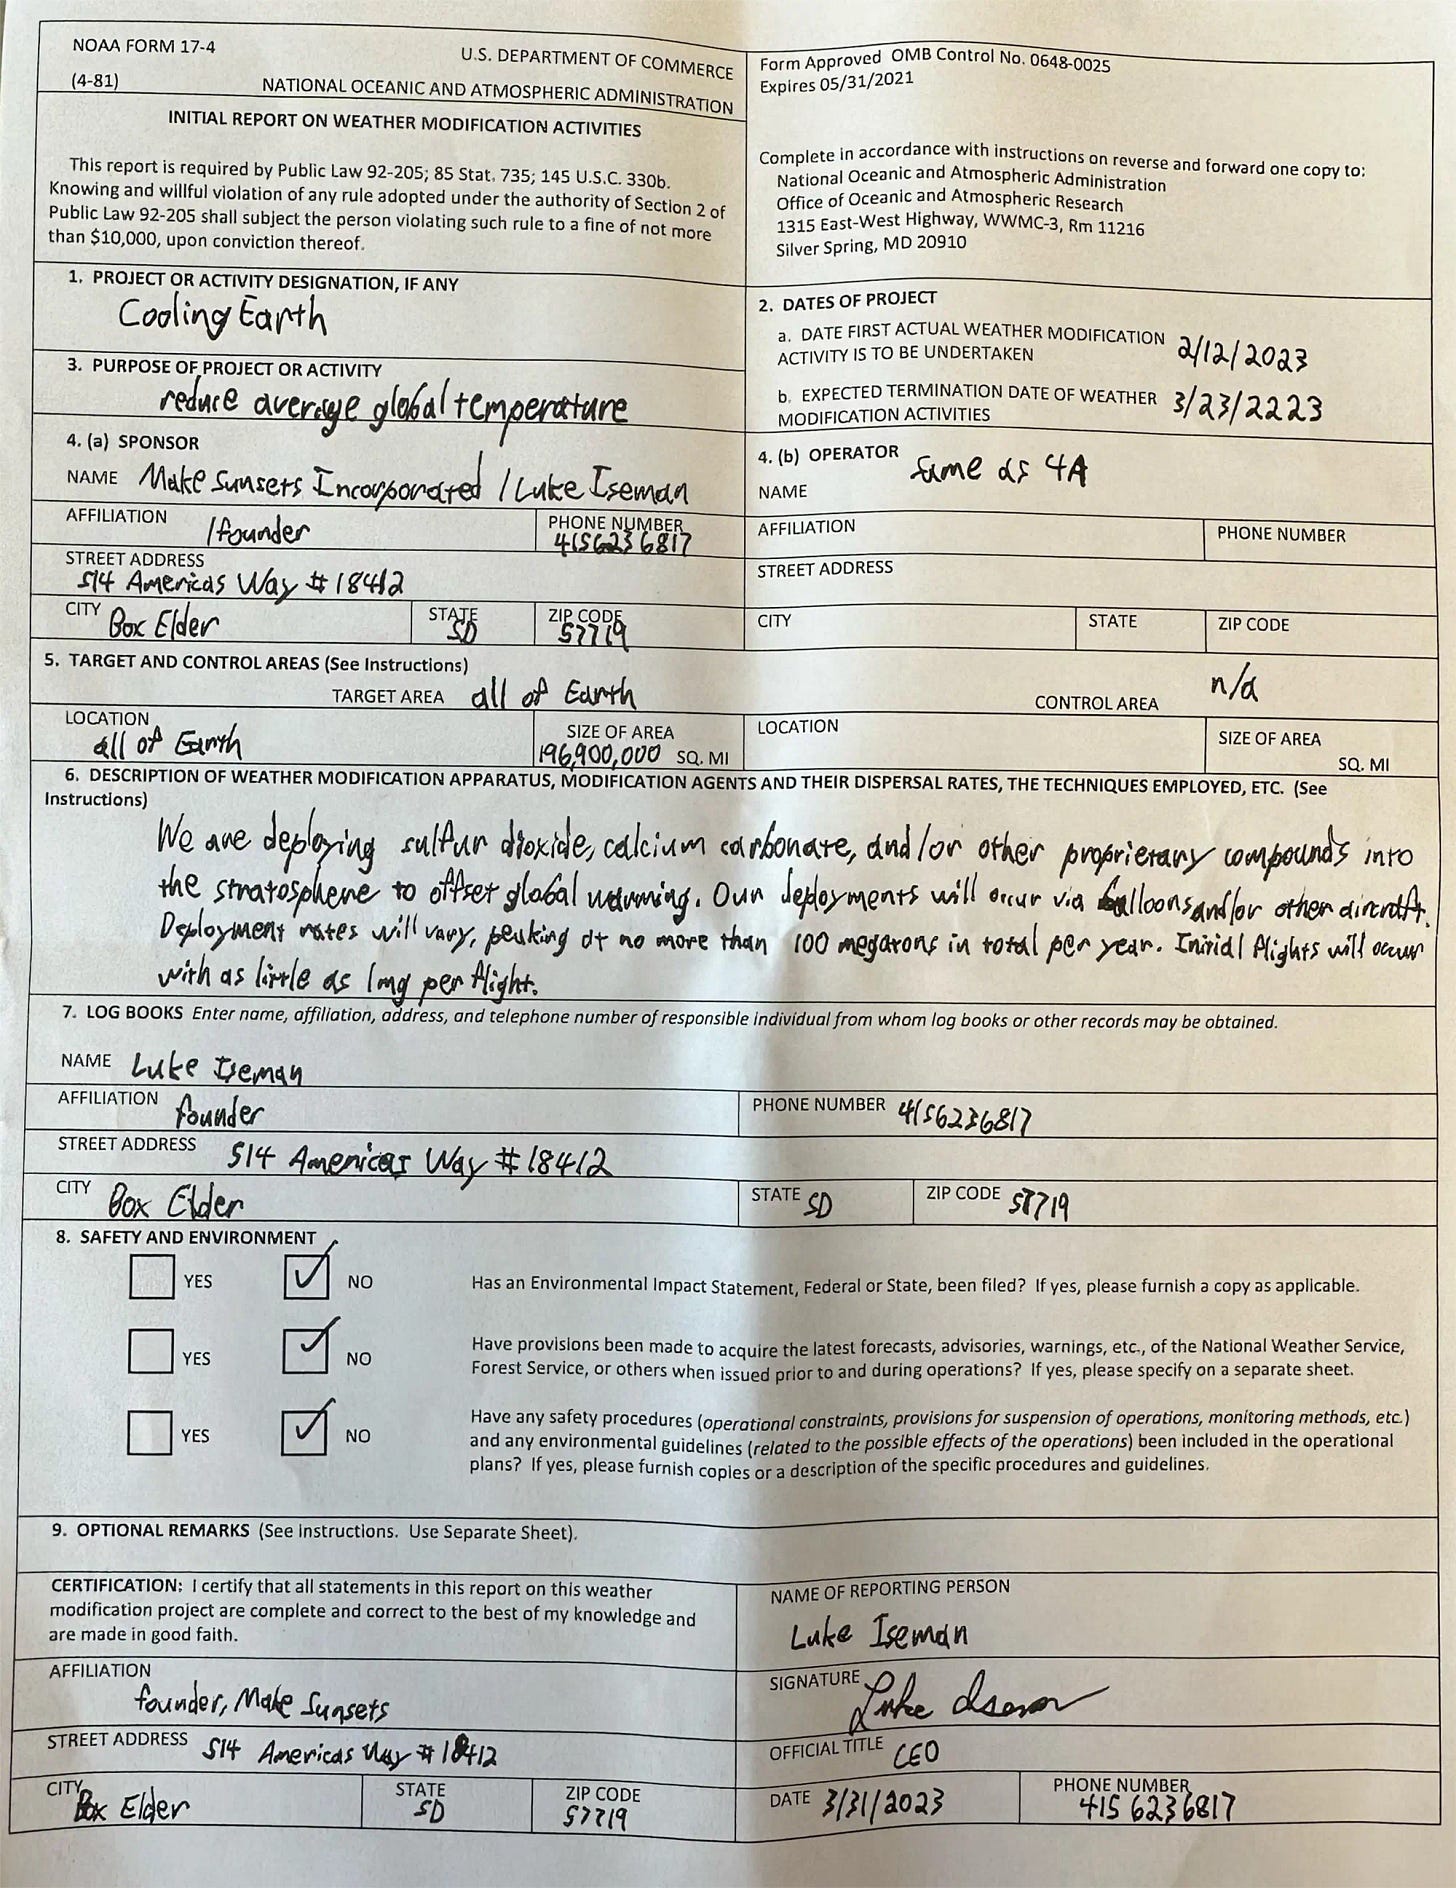 NOAA FORM 17-4
(4-81)
U.S. DEPARTMENT OF COMMERCE
NATIONAL OCEANIC AND ATMOSPHERIC ADMINISTRATION
Form Approved OMB Control No. 0648-0025
Expires 05/31/2021
INITIAL REPORT ON WEATHER MODIFICATION ACTIVITIES
This report is required by Public Law 92-205; 85 Stat. 735; 145 U.S.C. 330b.
Knowing and willful violation of any rule adopted under the authority of Section 2 of
Public Law 92-205 shall subject the person violating such rule to a fine of not more
than $10,000, upon conviction thereof.
Complete in accordance with instructions on reverse and forward one copy to:
National Oceanic and Atmospheric Administration
Office of Oceanic and Atmospheric Research
1315 East-West Highway, WWMC-3, Rm 11216
Silver Spring, MD 20910
1. PROJECT OR ACTIVITY DESIGNATION, IF ANY
Cooling Earth
2. DATES OF PROJECT
a. DATE FIRST ACTUAL WEATHER MODIFICATION
ACTIVITY IS TO BE UNDERTAKEN 2/12/2023
b. EXPECTED TERMINATION DATE OF WEATHER
MODIFICATION ACTIVITIES 3/23/2223
3. PURPOSE OF PROJECT OR ACTIVITY
reduce average global temperature
4. (a) SPONSOR
NAME Make Sunsets Incorporated / Luke Iseman
AFFILIATION /founder
PHONE NUMBER 4156236817
STREET ADDRESS
514 Americas Way # 18412
CITY Box Elder
STATE SD
ZIP CODE 57719
4. (b) OPERATOR same as 4A
NAME
AFFILIATION
PHONE NUMBER
STREET ADDRESS
CITY
STATE
ZIP CODE
5. TARGET AND CONTROL AREAS (See Instructions)
TARGET AREA all of Earth
CONTROL AREA n/a
LOCATION
all of Earth
SIZE OF AREA
196,900,000 SQ. MI
LOCATION
SIZE OF AREA
SQ. MI
6. DESCRIPTION OF WEATHER MODIFICATION APPARATUS, MODIFICATION AGENTS AND THEIR DISPERSAL RATES, THE TECHNIQUES EMPLOYED, ETC. (See
Instructions)
We are deploying sulfur dioxide, calcium carbonate, and/or other proprietary compounds into
the stratosphere to offset global warming. Our deployments will occur via balloons and/or other aircraft.
Deployment rates will vary, peaking at no more than 100 megatons in total per year. Initial flights will occur
with as little as 1mg per flight.
7. LOG BOOKS Enter name, affiliation, address, and telephone number of responsible individual from whom log books or other records may be obtained.
NAME Luke Iseman
AFFILIATION founder
PHONE NUMBER 4156236817
STREET ADDRESS 514 Americas Way # 18412
CITY Box Elder
STATE SD
ZIP CODE 57719
8. SAFETY AND ENVIRONMENT
YES ✓ NO Has an Environmental Impact Statement, Federal or State, been filed? If yes, please furnish a copy as applicable.
YES ✓ NO Have provisions been made to acquire the latest forecasts, advisories, warnings, etc., of the National Weather Service,
Forest Service, or others when issued prior to and during operations? If yes, please specify on a separate sheet.
YES ✓ NO Have any safety procedures (operational constraints, provisions for suspension of operations, monitoring methods, etc.)
and any environmental guidelines (related to the possible effects of the operations) been included in the operational
plans? If yes, please furnish copies or a description of the specific procedures and guidelines.
9. OPTIONAL REMARKS (See Instructions. Use Separate Sheet).
CERTIFICATION: I certify that all statements in this report on this weather
modification project are complete and correct to the best of my knowledge and
are made in good faith.
NAME OF REPORTING PERSON
Luke Iseman
AFFILIATION
founder, Make Sunsets
SIGNATURE Luke Iseman
STREET ADDRESS 514 Americas Way # 18412
OFFICIAL TITLE CEO
CITY Box Elder
STATE SD
ZIP CODE 57719
DATE 3/31/2023
PHONE NUMBER 415 6236817